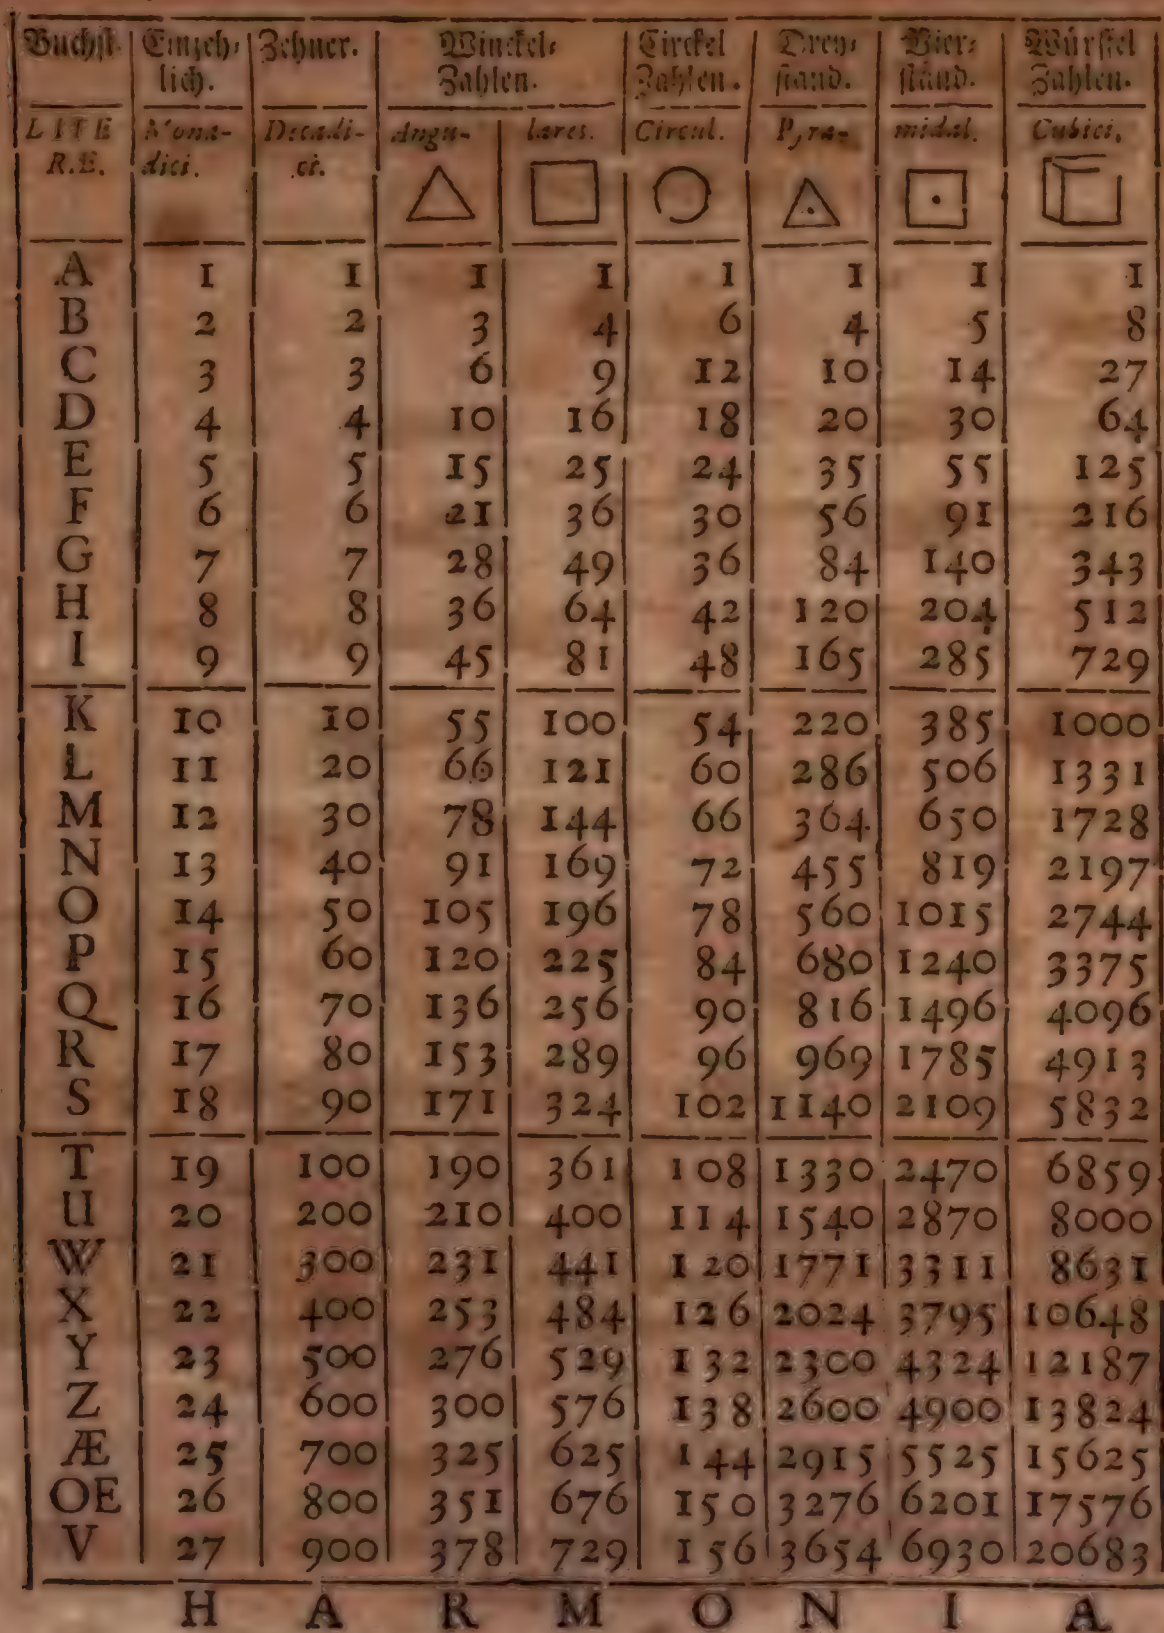 Buchst. Eintzeh= Zehner. Winckel= Circkel Drey= Vier= Würffel
lich. Zahlen. Zahlen. stand. ständ. Zahlen.
LITE Mona- Decadi- Angu- lares. Circul. Pyra- midal. Cubici.
R.E. dici. ci.
A 1 1 1 1 1 1 1 1
B 2 2 3 4 6 4 5 8
C 3 3 6 9 12 10 14 27
D 4 4 10 16 18 20 30 64
E 5 5 15 25 24 35 55 125
F 6 6 21 36 30 56 91 216
G 7 7 28 49 36 84 140 343
H 8 8 36 64 42 120 204 512
I 9 9 45 81 48 165 285 729
K 10 10 55 100 54 220 385 1000
L 11 20 66 121 60 286 506 1331
M 12 30 78 144 66 364 650 1728
N 13 40 91 169 72 455 819 2197
O 14 50 105 196 78 560 1015 2744
P 15 60 120 225 84 680 1240 3375
Q 16 70 136 256 90 816 1496 4096
R 17 80 153 289 96 969 1785 4913
S 18 90 171 324 102 1140 2109 5832
T 19 100 190 361 108 1330 2470 6859
U 20 200 210 400 114 1540 2870 8000
W 21 300 231 441 120 1771 3311 8631
X 22 400 253 484 126 2024 3795 10648
Y 23 500 276 529 132 2300 4324 12187
Z 24 600 300 576 138 2600 4900 13824
Æ 25 700 325 625 144 2915 5525 15625
OE 26 800 351 676 150 3276 6201 17576
V 27 900 378 729 156 3654 6930 20683
H A R M O N I A